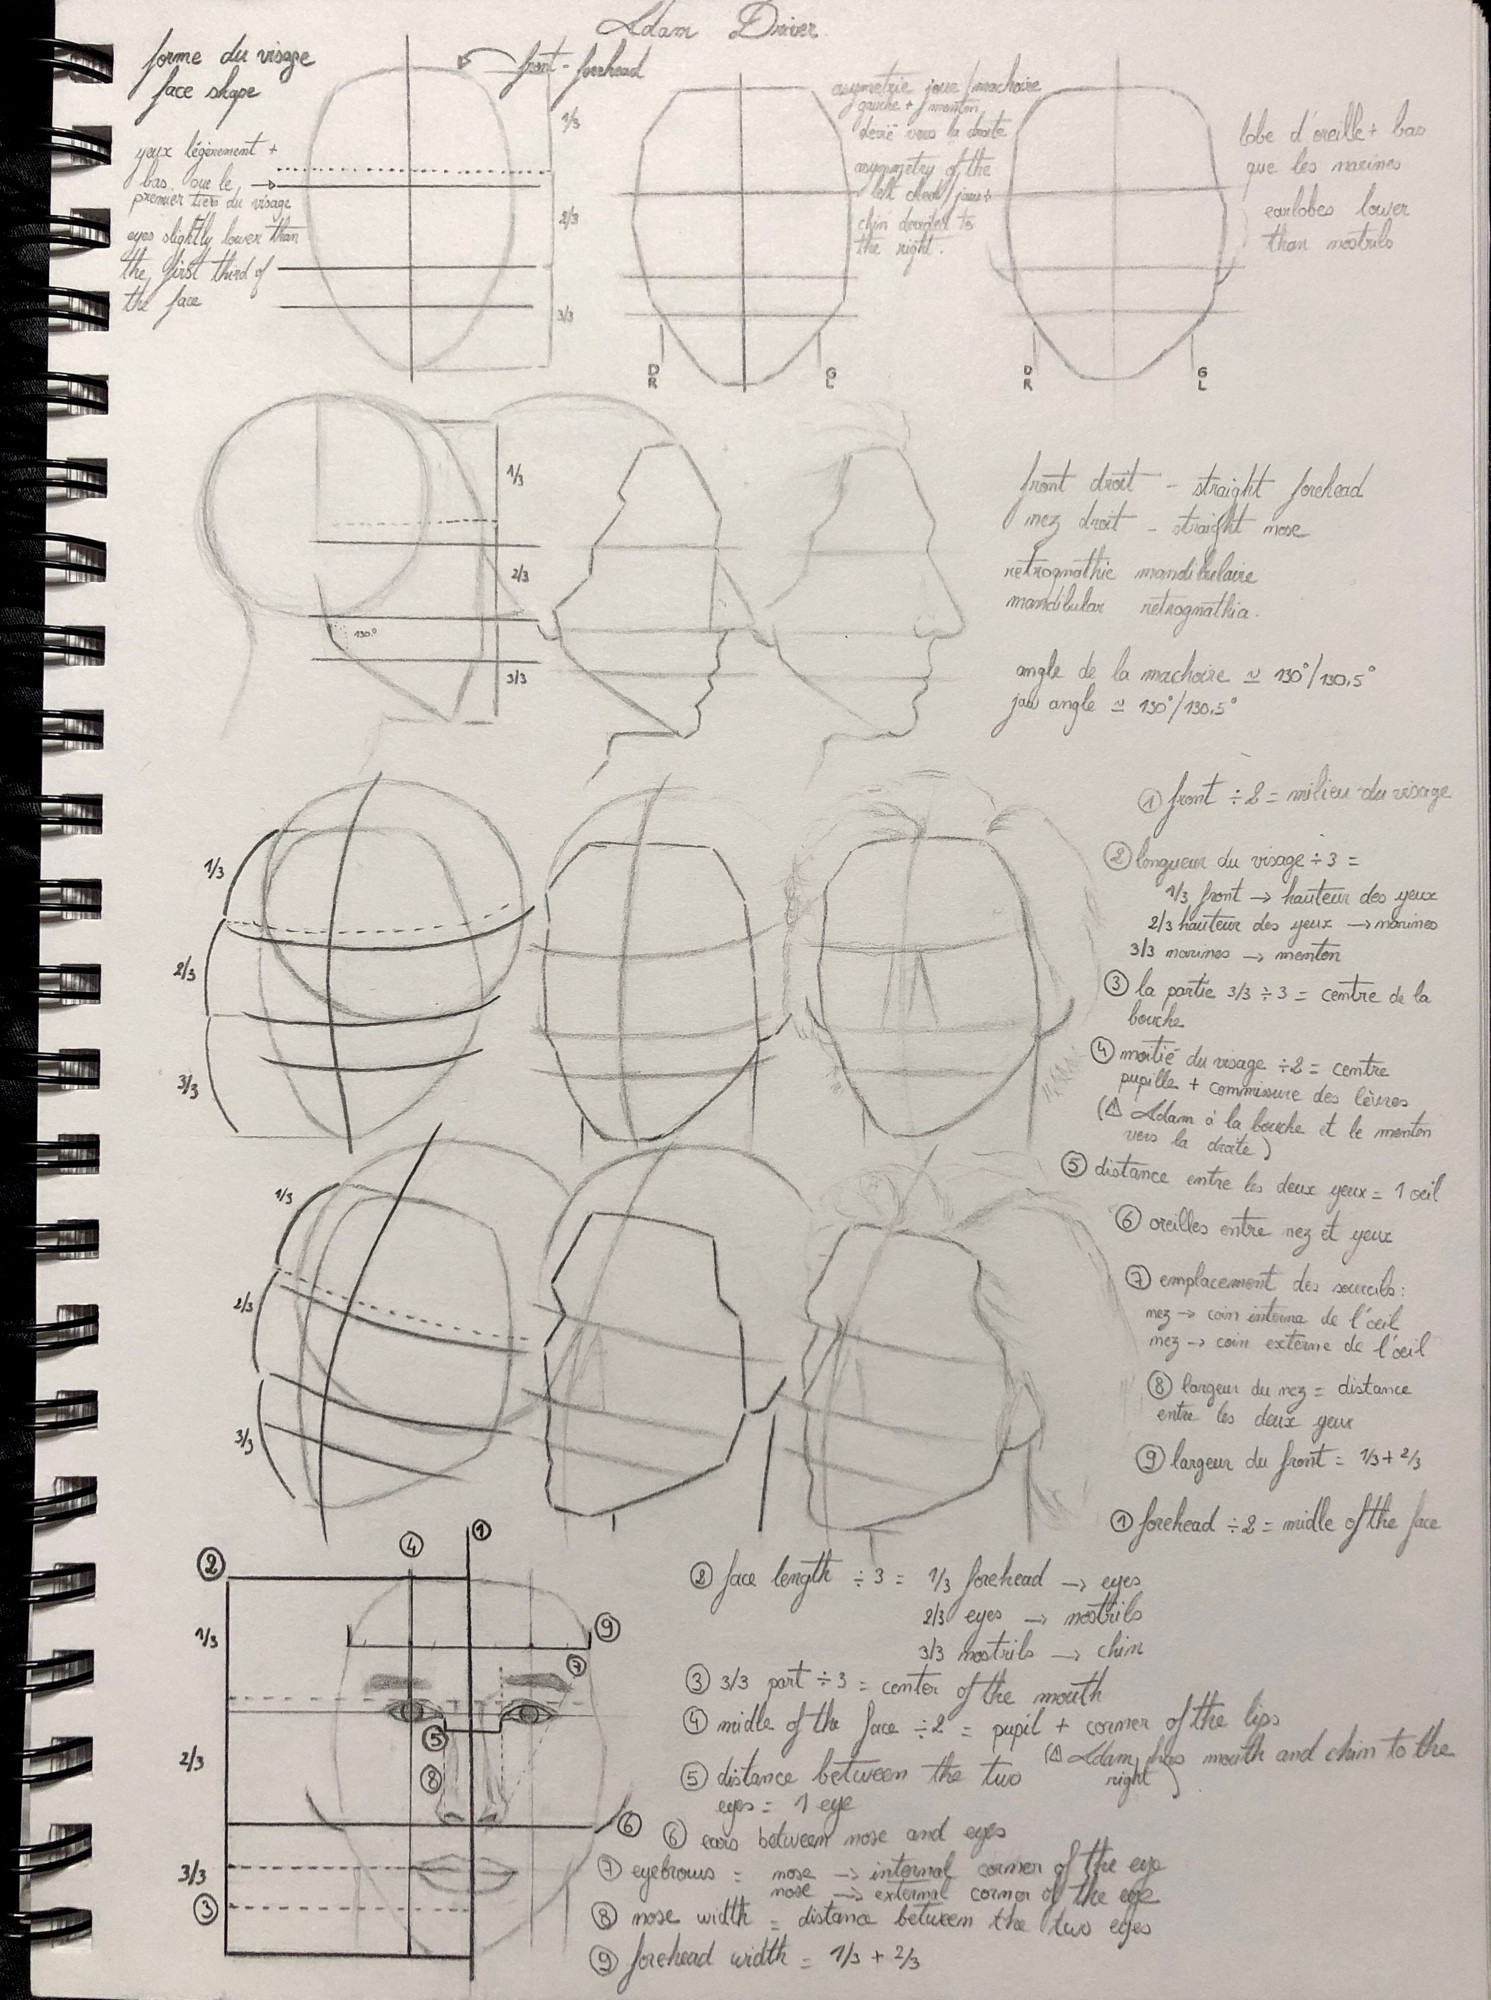 Adam Driver
forme du visage
face shape
front - forehead
yeux légèrement +
bas que le
premier tiers du visage
eyes slightly lower than
the first third of
the face
1/3
2/3
3/3
asymetrie joue/machoire
gauche + menton
devié vers la droite
asymmetry of the
left cheek/jaw+
chin deviated to
the right.
D
R
G
L
D
R
G
L
lobe d'oreille + bas
que les narines
earlobes lower
than nostrils
1/3
2/3
3/3
130°
front droit - straight forehead
nez droit - straight nose
retrognathie mandibulaire
mandibular retrognathia.
angle de la machoire ≃ 130°/130,5°
jaw angle ≃ 130°/130,5°
1/3
2/3
3/3
① front ÷ 2 = milieu du visage
② longueur du visage ÷ 3 =
1/3 front → hauteur des yeux
2/3 hauteur des yeux → narines
3/3 narines → menton
③ la partie 3/3 ÷ 3 = centre de la
bouche
④ moitié du visage ÷2 = centre
pupille + commissure des lèvres
(⚠ Adam à la bouche et le menton
vers la droite)
⑤ distance entre les deux yeux = 1 oeil
⑥ oreilles entre nez et yeux
⑦ emplacement des sourcils:
nez → coin interne de l'oeil
nez → coin externe de l'oeil
⑧ largeur du nez = distance
entre les deux yeux
⑨ largeur du front = 1/3 + 2/3
1/3
2/3
3/3
① forehead ÷ 2 = midle of the face
② face length ÷ 3 = 1/3 forehead → eyes
2/3 eyes → nostrils
3/3 nostrils → chin
③ 3/3 part ÷ 3 = center of the mouth
④ midle of the face ÷2 = pupil + corner of the lips
(⚠ Adam has mouth and chin to the
right)
⑤ distance between the two
eyes = 1 eye
⑥ ears between nose and eyes
⑦ eyebrows = nose → internal corner of the eye
nose → external corner of the eye
⑧ nose width = distance between the two eyes
⑨ forehead width = 1/3 + 2/3
②
④
①
1/3
⑨
⑦
⑤
2/3
⑧
⑥
3/3
③